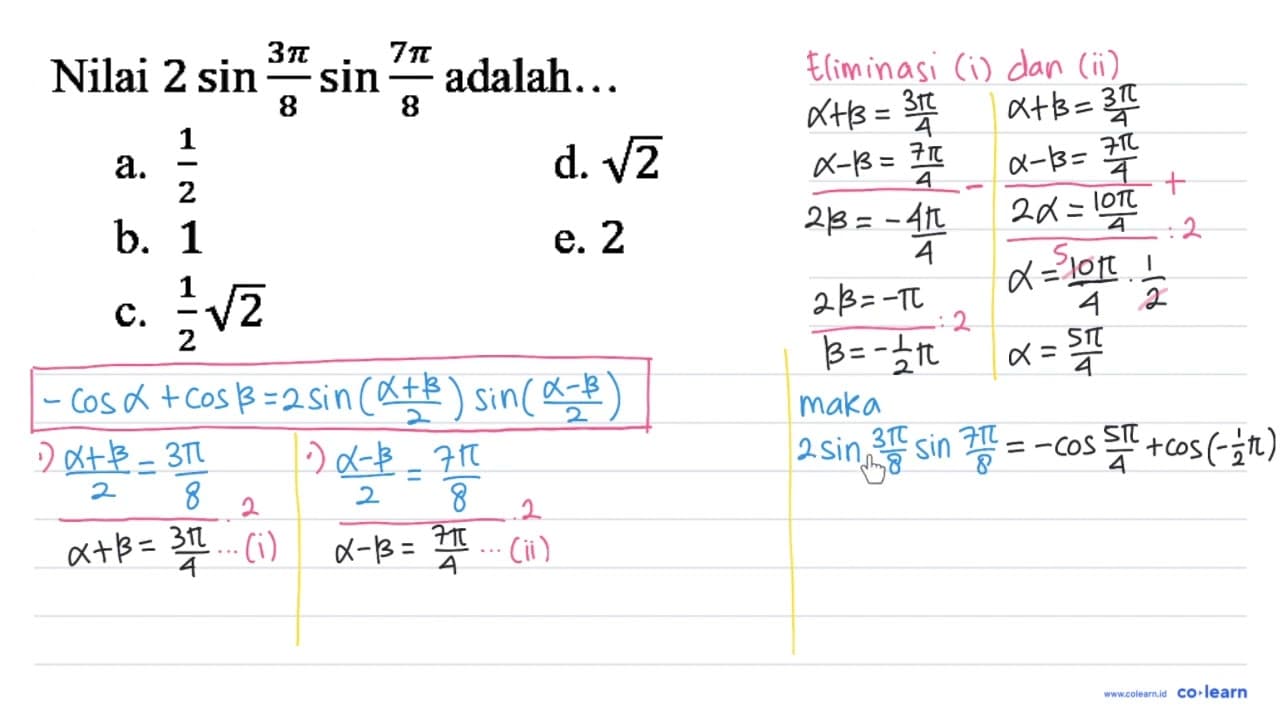 Nilai 2 sin 3π/8 sin 7π/8 adalah...
a. 1/2
b. 1
c. 1/2 √2
d. √2
e. 2
-cos α + cos β = 2 sin (α+β/2) sin (α-β/2)
·) α+β/2 = 3π/8
.2
α+β = 3π/4 ... (i)
·) α-β/2 = 7π/8
.2
α-β = 7π/4 ... (ii)
Eliminasi (i) dan (ii)
α+β = 3π/4
α-β = 7π/4 -
2β = -4π/4
2β = -π :2
β = -1/2 π
α+β = 3π/4
α-β = 7π/4 +
2α = 10π/4 :2
α = 10π/4 · 1/2
5
α = 5π/4
maka
2 sin 3π/8 sin 7π/8 = -cos 5π/4 + cos (-1/2 π)
www.colearn.id co·learn